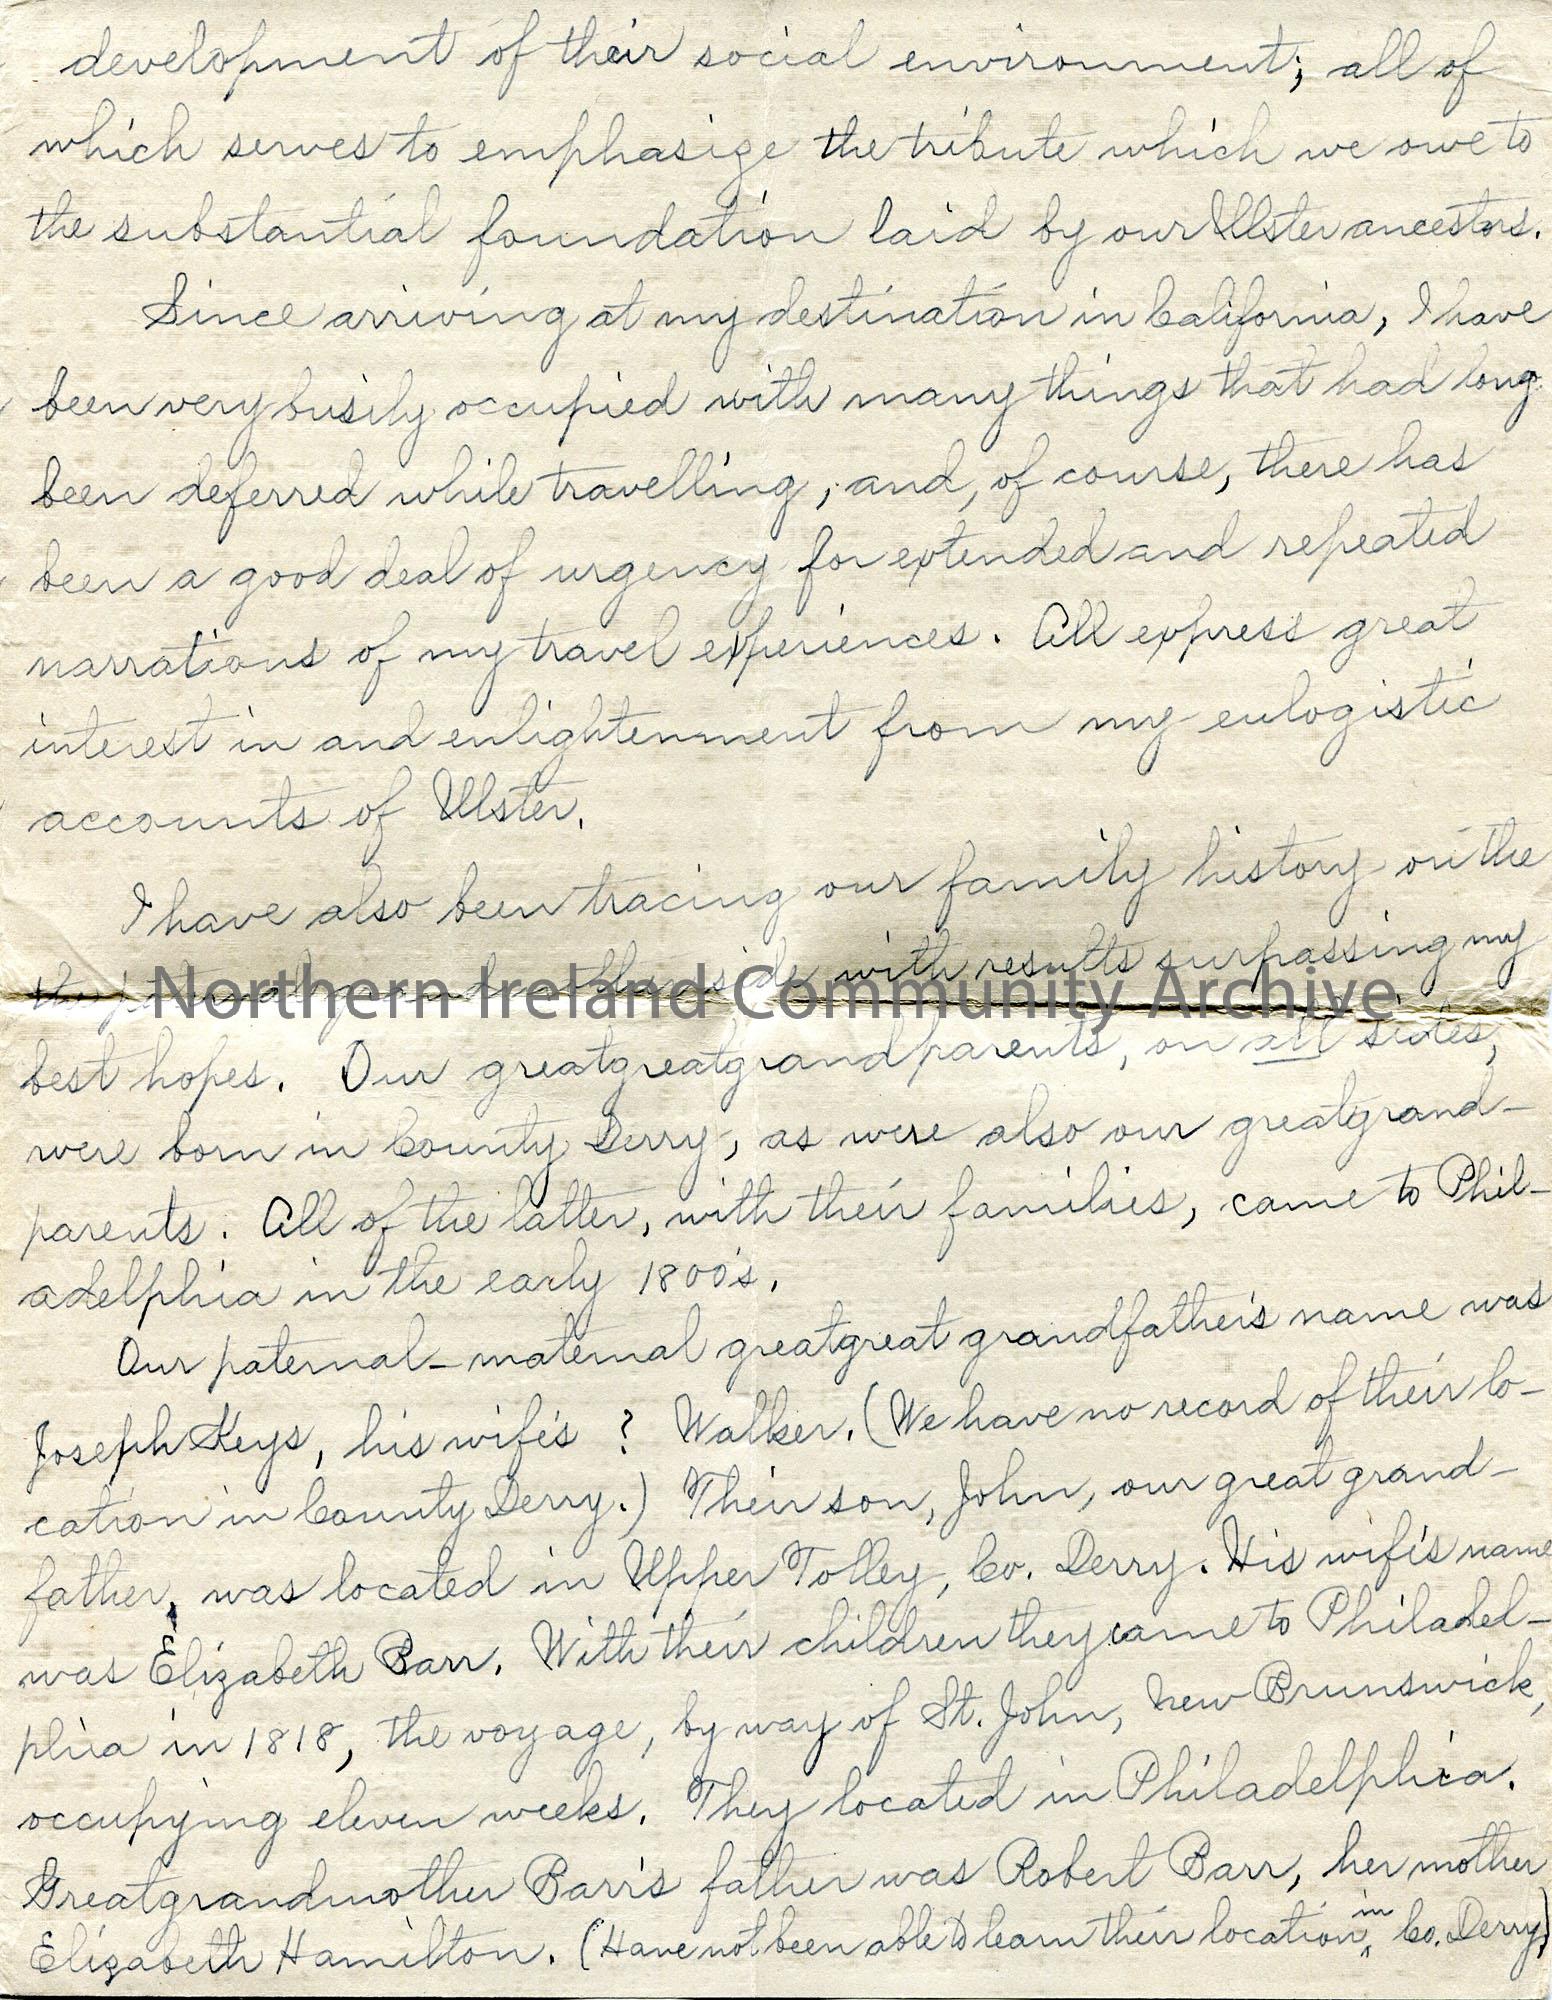 development of their social environment; all of
which serves to emphasize the tribute which we owe to
the substantial foundation laid by our Ulster ancestors.
Since arriving at my destination in California, I have
been very busily occupied with many things that had long
been deferred while travelling, and, of course, there has
been a good deal of urgency for extended and repeated
narrations of my travel experiences. All express great
interest in and enlightenment from my eulogistic
accounts of Ulster.
I have also been tracing our family history on the
side with results surpassing my
Northern Ireland Community Archive
best hopes. Our greatgreatgrandparents, on all sides,
were born in County Derry, as were also our greatgrand-
parents. All of the latter, with their families, came to Phil-
adelphia in the early 1800's.
Our paternal-maternal greatgreat grandfather's name was
Joseph Keys, his wife's ? Walker. (We have no record of their lo-
cation in County Derry.) Their son, John, our great grand-
father, was located in Upper Tolley, Co. Derry. His wife's name
was Elizabeth Barr. With their children they came to Philadel-
phia in 1818, the voyage, by way of St. John, New Brunswick,
occupying eleven weeks. They located in Philadelphia.
Greatgrandmother Barr's father was Robert Barr, her mother
Elizabeth Hamilton. (Have not been able to learn their location in Co. Derry)